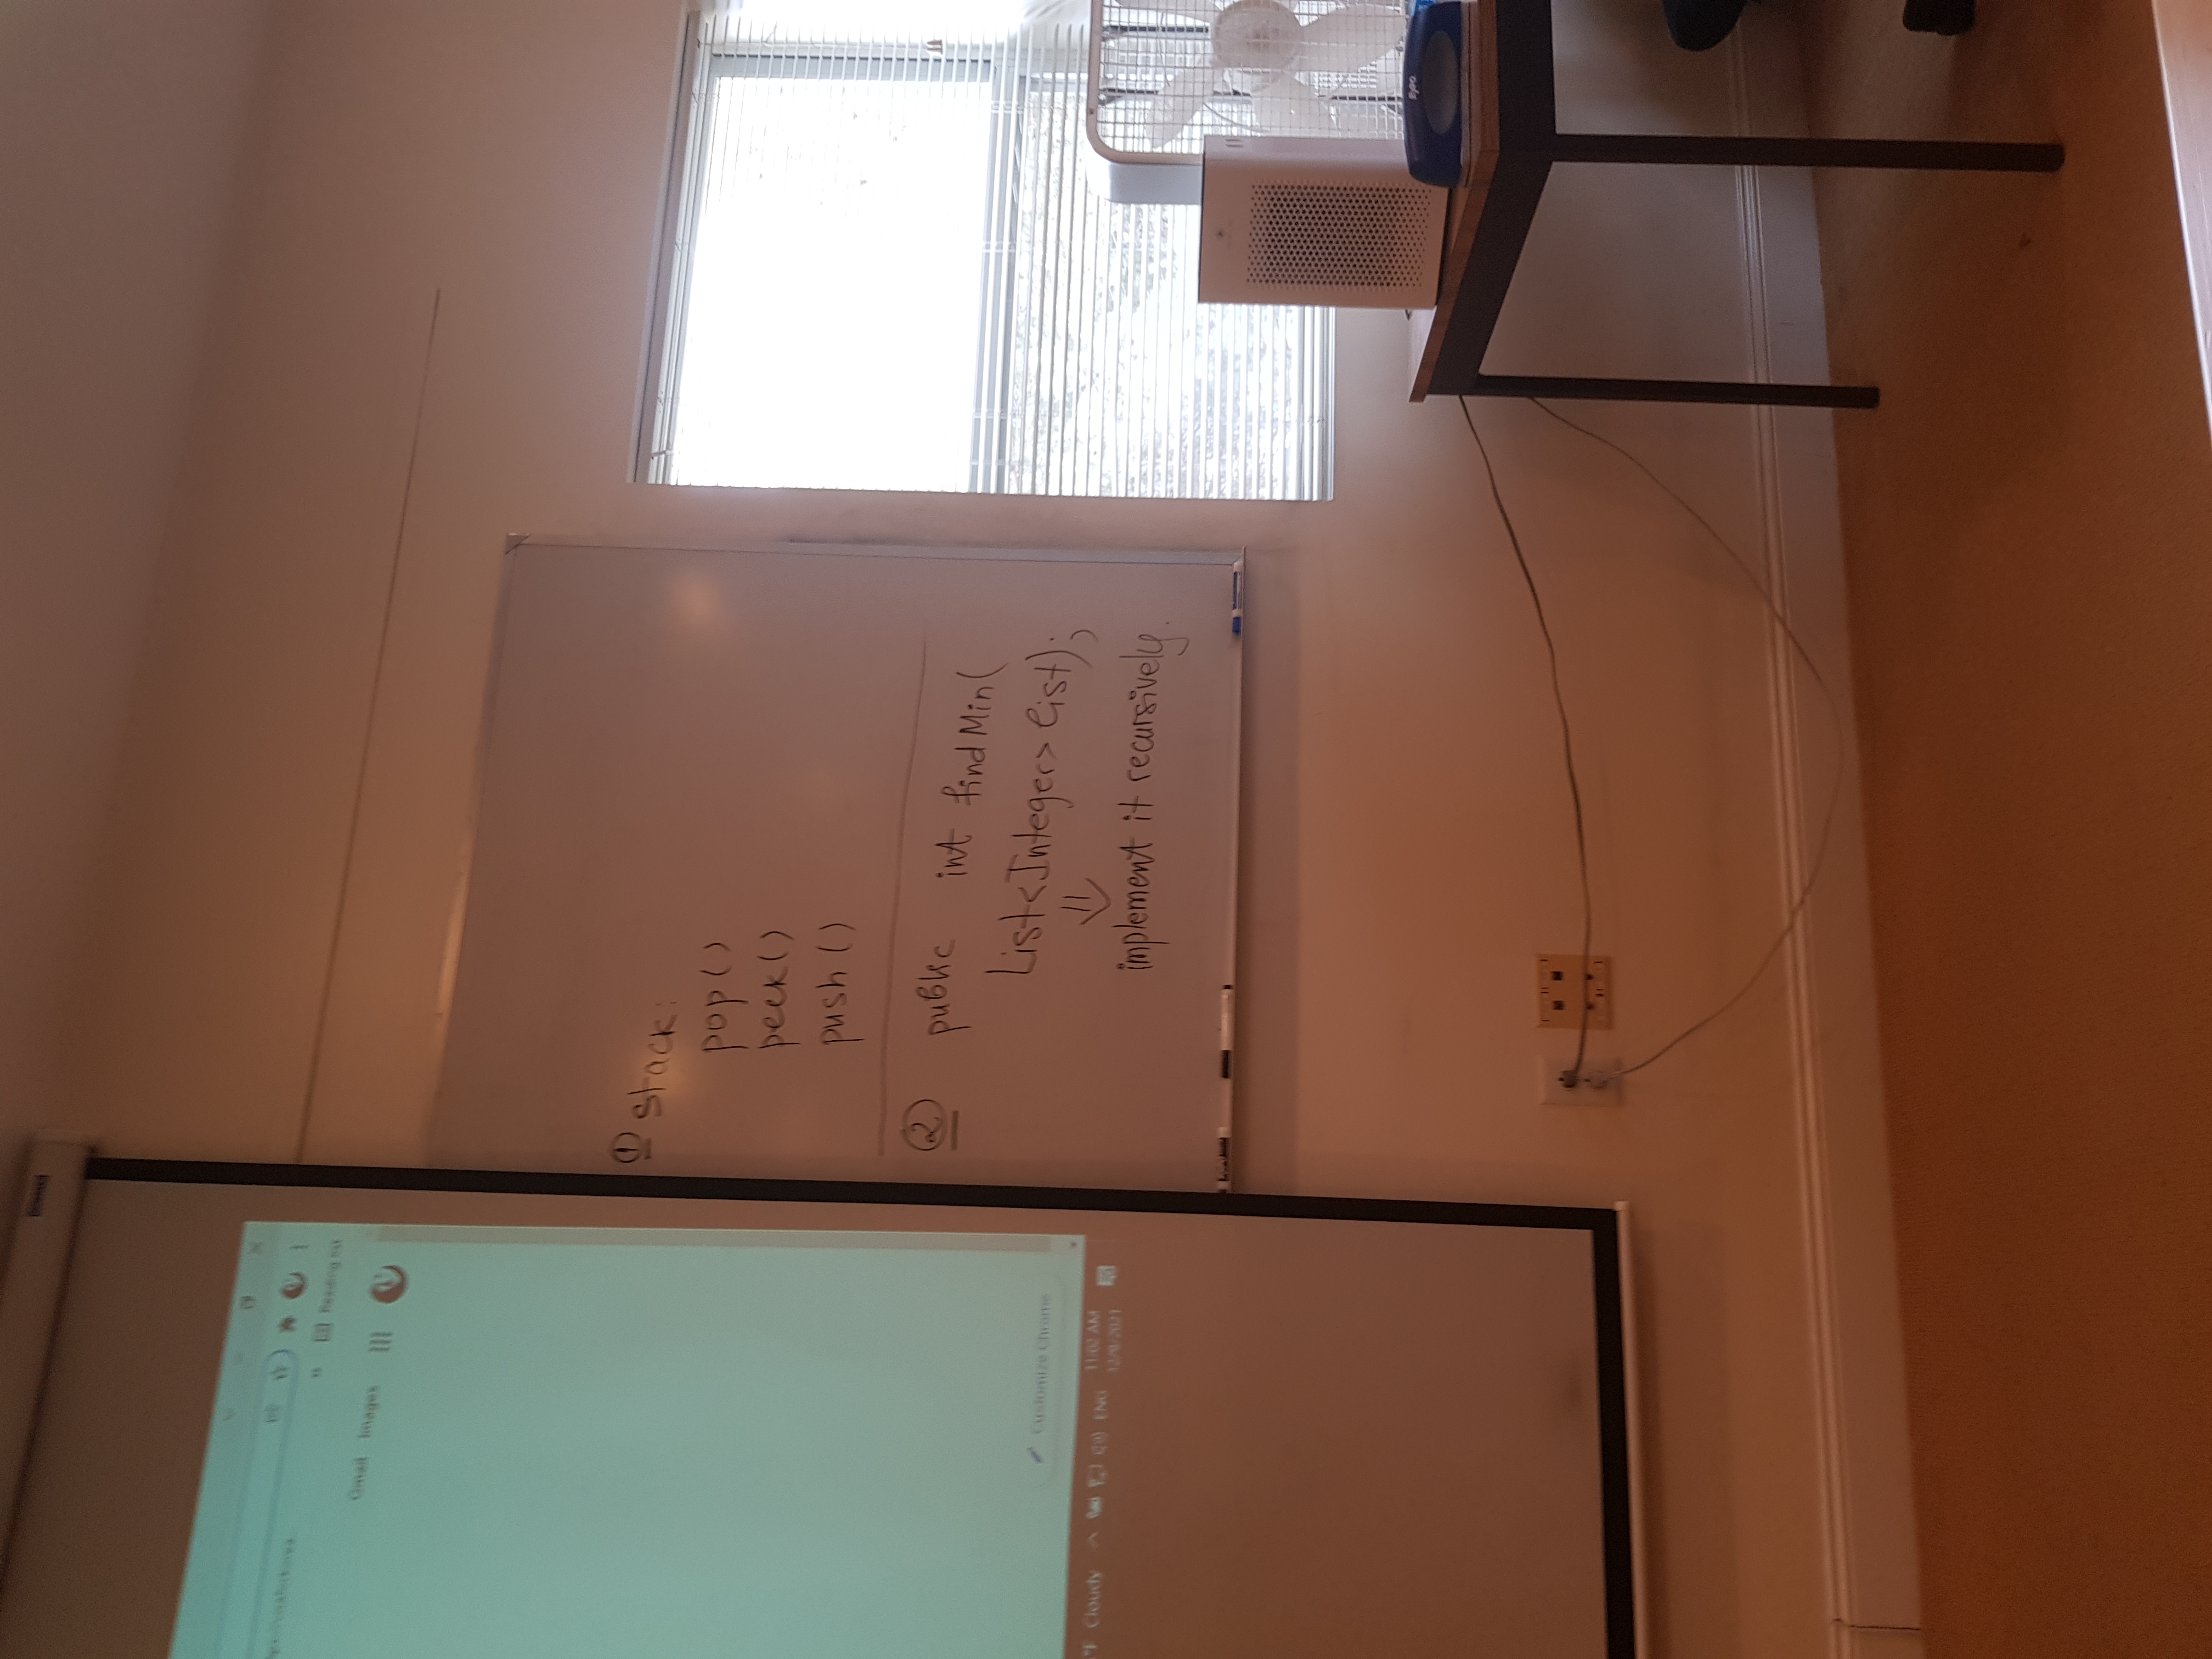 Reading list
Gmail Images
Customize Chrome
°F Cloudy ENG 11:02 AM
① stack:
pop()
peek()
push()
② public int findMin(
List<Integer> list);
implement it recursively.
EXPO